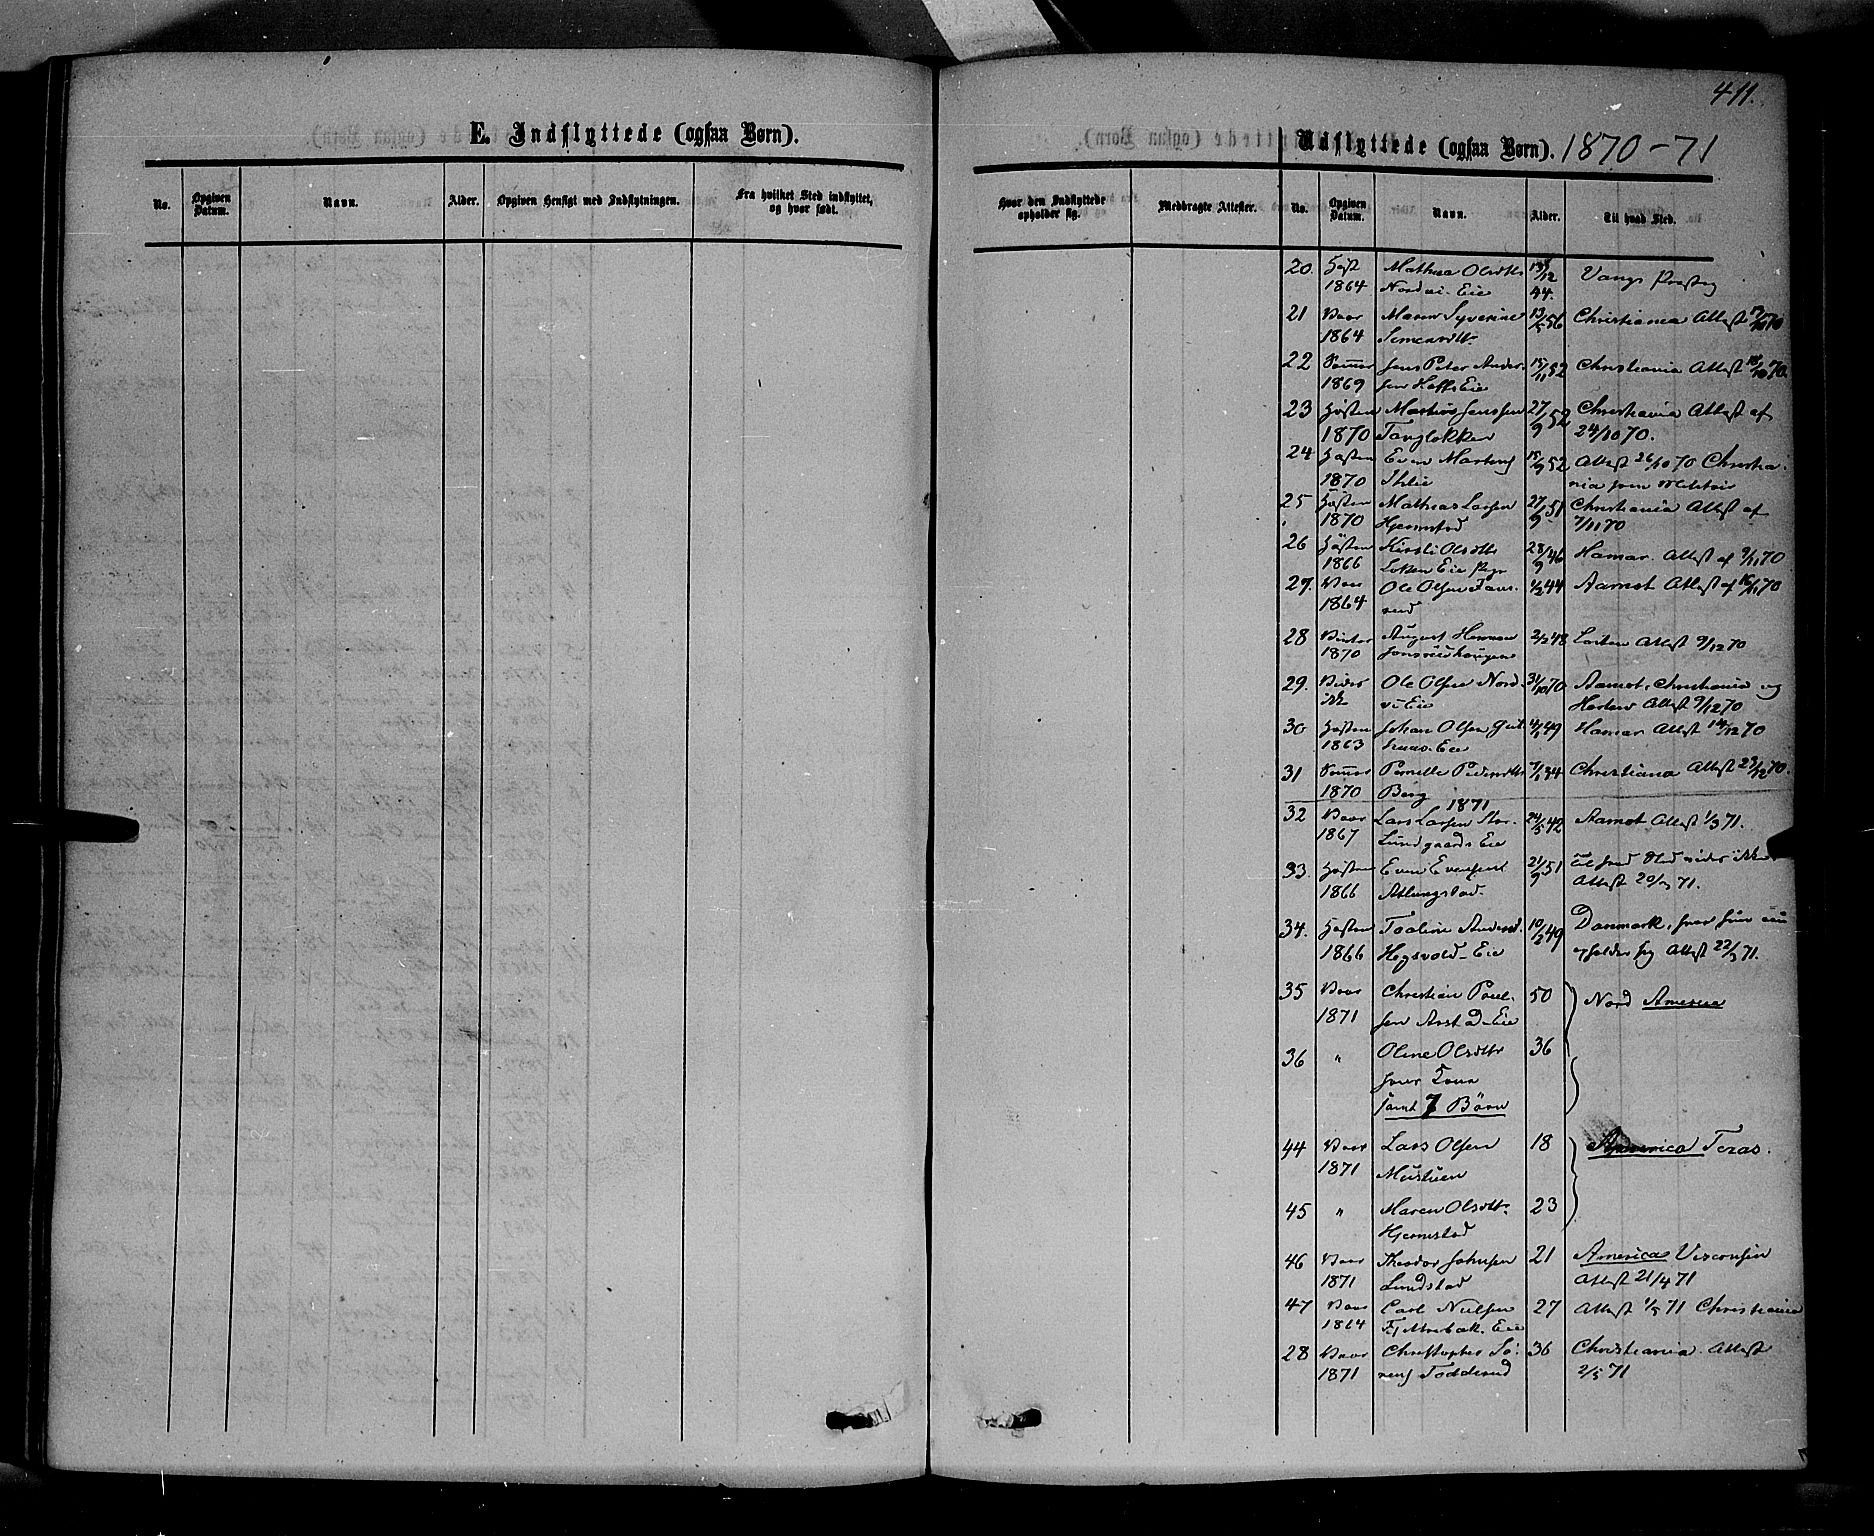 411.
E. Indflyttede (ogsaa Børn).
No.
Opgiven Datum.
Navn.
Alder.
Opgiven Hensigt med Indflytningen.
Fra hvilket Sted indflyttet, og hvor født.
Udflyttede (ogsaa Børn). 1870-71
Hvor den Indflyttede opholder sig.
Medbragte Attester.
No.
Opgiven Datum.
Navn.
Alder.
Til hvad Sted.
20. Høst Mathea Olsdtr 12 Vangs Præstg
1864 Nordvi. Eie 44.
21 Vaar Maren Syverine 13/5 56 Christiania Attest 70
1864 Simensdtr
22 Sommer Jens Peter Ander- 15/11 32 Christiania Attest 70.
1869 sen Hoffs Eie
23 Høsten Martius Jenssen 27/9 52 Christiania Attest af
1870 Tangløkken 24/10 70.
24 Høsten Even Martens 18/9 52 Attest 26/10 70 Christia-
1870 Ihlie nia som Militær
25 Høsten Mathias Larsen 27/9 51 Christiania Attest af
1870 Hjemstad 7/11 70
26 Høsten Kirsti Olsdtr 28/9 46 Hamar. Attest af 9/11 70
1866 Løken Eie
27. Vaar Ole Olsen 1/2 44 Aamot Attest af 16/11 70
1864
28 Vinter August Herman 2/2 48 Løiten Attest 9/12 70
1870
29. Ole Olsen Nord- 31/10 70 Aamot, Christiania og
vi Eie Attest 9/12 70
30 Høsten Johan Olsen Gul- 4/1 49 Hamar Attest 14/12 70
1863 Eie
31 Sommer Pernille Pedersdtr 7/1 34 Christiania Attest 23/12 70.
1870 Berg
1871
32 Vaar Lars Larsen Stor- 24/5 42 Aamot Attest 1/3 71.
1867 Lundgaards Eie
33. Høsten Even Evensen 21/9 51 til hvad Sted vides ikke
1866 Atlungstad. Attest 20/3 71.
34. Høsten Toline Andersd. 10/2 49 Danmark, hvor hun nu
1866 Hegsvold-Eie opholder sig Attest 22/3 71.
35 Vaar Christian Poul- 50 Nord America
1871 sen Arstad-Eie
36 " Oline Olsdtr 36
hans Kone
samt 7 Børn
44 Vaar Lars Olsen 18 America Texas.
1871 Mustuen
45 " Maren Olsdtr. 23
Hjemstad
46 Vaar Theodor Johnsen 21 America Visconsin
1871 Lundstad Attest 21/4 71
47 Vaar Carl Nielsen 27 Attest 1/5 71 Christiania
1864 Eie
28 Vaar Christopher Sø- 36 Christiania. Attest
1871 rens Todderud 2/5 71